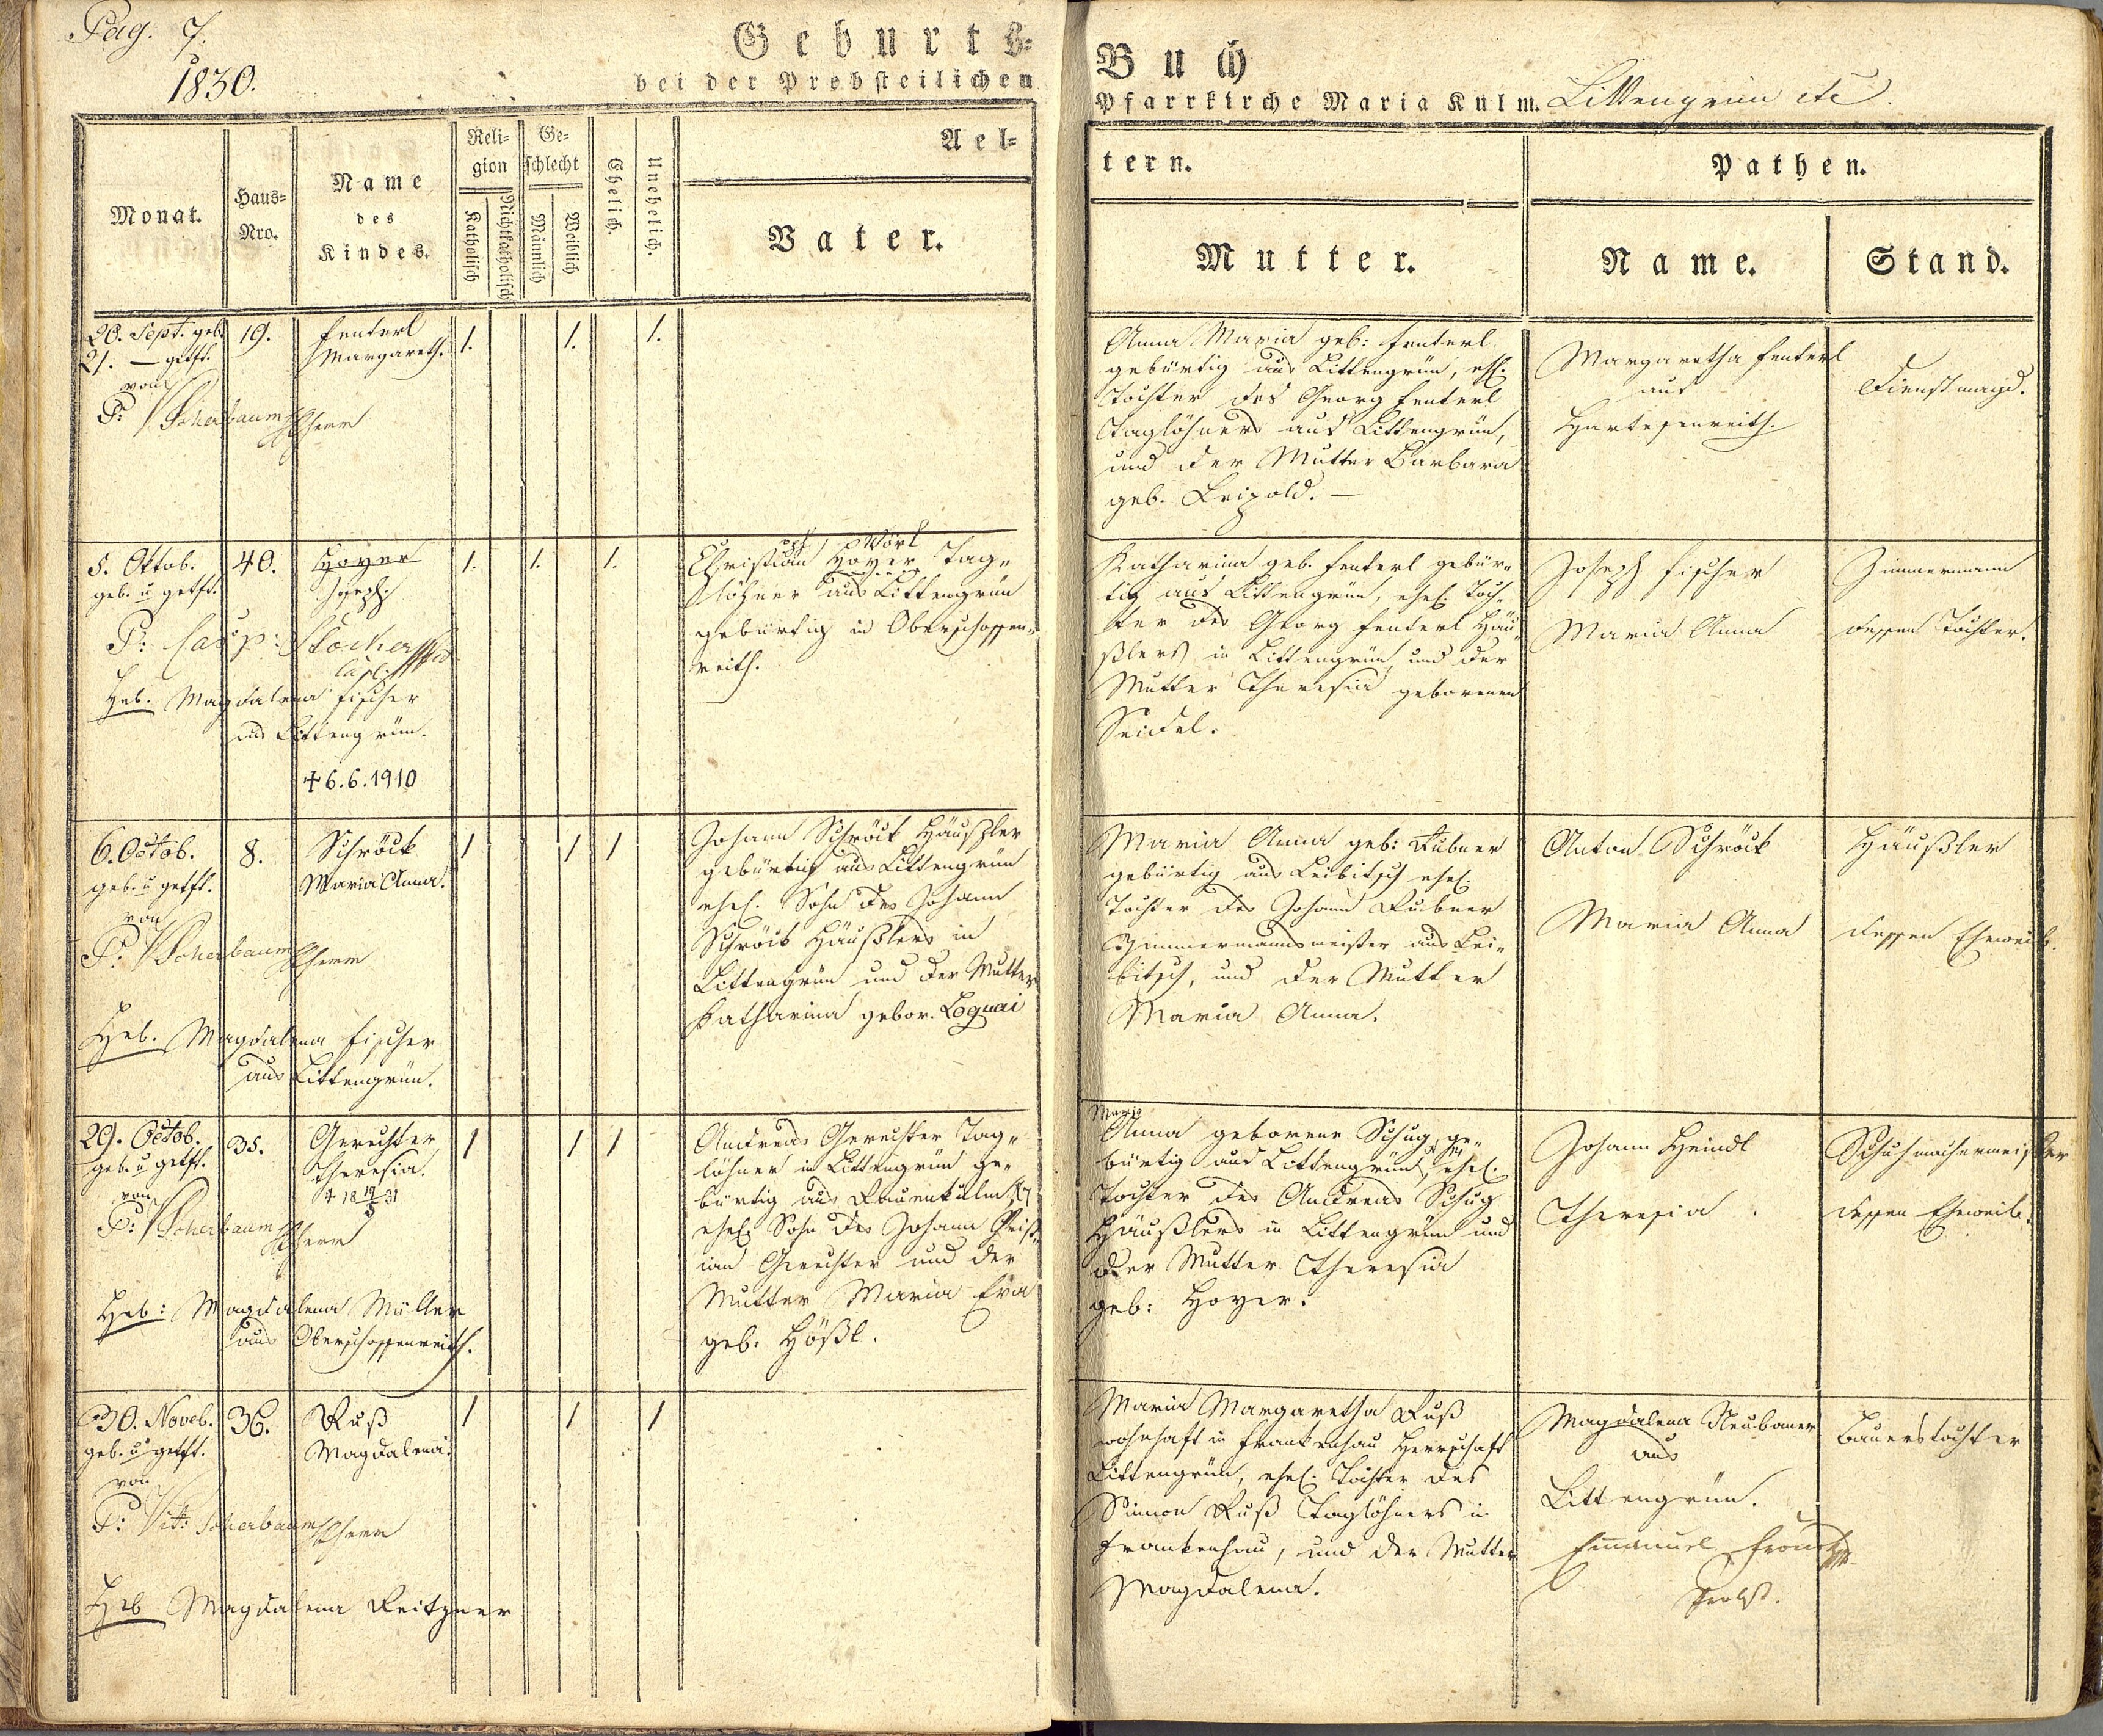 Pag. 7.
1830.
Geburts-
bei der Probsteilichen
Buch
Pfarrkirche Maria Kulm. Littengrün etc.
Monat.
Haus-
Nro.
Name
des
Kindes.
Reli-
gion
Katholisch
Nichtkatholisch
Ge-
schlecht
Männlich
Weiblich
Ehelich.
Unehelich.
Ael-
Vater.
tern.
Mutter.
Pathen.
Name.
Stand.
20. Sept. geb.
21. — getft.
von
P: V Scherbaum
19.
Fenterl
Margareth.
1. 1. 1.
Anna Maria geb: Fenterl
gebürtig aus Littengrün, ehl.
Tochter des Georg Fenterl
Taglöhners aus Littengrün,
und der Mutter Barbara
geb. Leipold. —
Margaretha Fenterl
aus
Hartessenreith.
Dienstmagd.
5. Oktob.
geb. u getft.
P: Casp: Stocker
Heb. Magdalena Fischer
aus Littengrün.
40.
Hoyer
Joseph.
✝ 6.6.1910
1. 1. 1.
Christian Hoyer Tag-
Wörl
löhner aus Littengrün
gebürtig in Oberschossen-
reith.
Katharina geb. Fenterl gebür-
tig aus Littengrün, ehel. Toch-
ter des Georg Fenterl Häu-
ßlers in Littengrün, und der
Mutter Theresia geborenen
Seidel.
Joseph Fischer
Maria Anna
Zimmermann
dessen Tochter.
6. Octob.
geb. u getft.
von
P. V Scherbaum
Heb. Magdalena Fischer
aus Littengrün.
8.
Schröck
Maria Anna.
1 1 1
Johann Schröck Häußler
gebürtig aus Littengrün
ehel. Sohn des Johann
Schröck Häußlers in
Littengrün und der Mutter
Katharina gebor. Loquai
Maria Anna geb: Rubner
gebürtig aus Leibitsch ehel.
Tochter des Johann Rubner
Zimmermannsmeister aus Lei-
bitsch, und der Mutter
Maria Anna.
Anton Schröck
Maria Anna
Häußler
dessen Eheweib.
29. Octob.
geb. u getft.
von
P: V Scherbaum
Heb: Magdalena Müller
aus Oberschossenreith.
35.
Gereuchter
Theresia.
1 1 1
Andreas Gereuchter Tag-
löhner in Littengrün ge-
bürtig aus Rauenkulm
ehel. Sohn des Johann
Gereuchter und der
Mutter Maria Eva
geb. Hößl.
Maria
Anna geborene Schug, ge-
bürtig aus Littengrün, ehel.
Tochter des Andreas Schug
Häußlers in Littengrün und
der Mutter Theresia
geb: Hoyer.
Johann Heindl
Theresia
Schuhmachermeister
dessen Eheweib.
30. Noveb.
geb. u getft.
von
P: Vit: Scherbaum
Heb Magdalena Reitzner
36.
Ruß
Magdalena.
1 1 1
Maria Margaretha Ruß
wohnhaft in Frankenhau Herrschaft
Littengrün, ehel. Tochter des
Simon Ruß Taglöhners in
Frankenhau, und der Mutter
Magdalena.
Magdalena Neubauer
aus
Littengrün.
Bauerstochter
Emanuel
Probst.